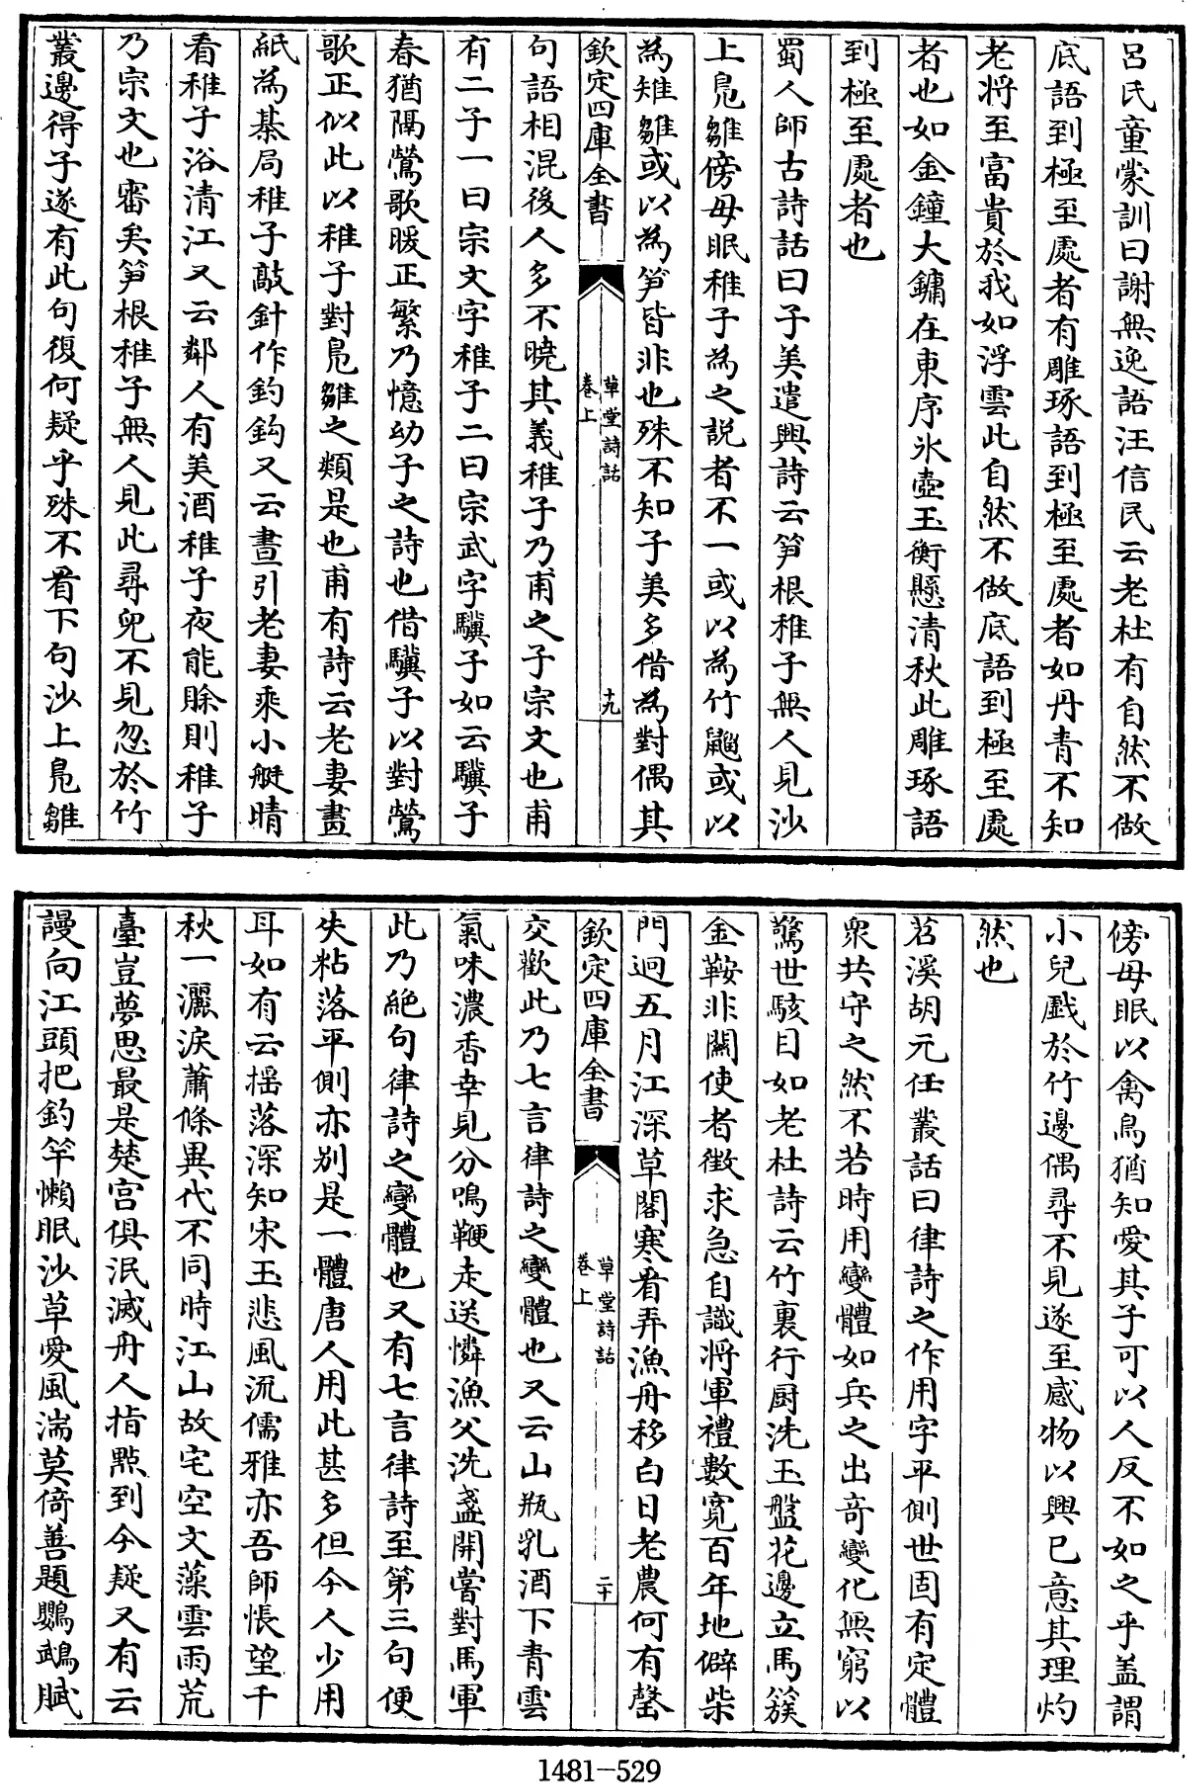 呂氏童蒙訓曰謝無逸語汪信民云老杜有自然不做
底語到極至處者有雕琢語到極至處者如丹青不知
老將至富貴於我如浮雲此自然不做底語到極至處
者也如金鐘大鏞在東序氷壺玉衡懸清秋此雕琢語
到極至處者也
蜀人師古詩話曰子美遣興詩云笋根稚子無人見沙
上鳬雛傍母眠稚子為之説者不一或以為竹䶉或以
為雉雛或以為笋皆非也殊不知子美多借為對偶其
欽定四庫全書
草堂詩話
卷上
十九
句語相混後人多不曉其義稚子乃甫之子宗文也甫
有二子一曰宗文字稚子二曰宗武字驥子如云驥子
春猶隔鶯歌暖正繁乃憶幼子之詩也借驥子以對鶯
歌正似此以稚子對鳬雛之類是也甫有詩云老妻畫
紙為棊局稚子敲針作釣鈎又云晝引老妻乘小艇晴
看稚子浴清江又云鄰人有美酒稚子夜能賒則稚子
乃宗文也審矣笋根稚子無人見此尋兒不見忽於竹
叢邊得子遂有此句復何疑乎殊不看下句沙上鳬雛
傍母眠以禽鳥猶知愛其子可以人反不如之乎盖謂
小兒戲於竹邊偶尋不見遂至感物以興已意其理灼
然也
苕溪胡元任叢話曰律詩之作用字平側世固有定體
衆共守之然不若時用變體如兵之出竒變化無窮以
驚世駭目如老杜詩云竹裏行厨洗玉盤花邊立馬簇
金鞍非關使者徴求急自識將軍禮數寛百年地僻柴
門迥五月江深草閣寒看弄漁舟移白日老農何有罄
欽定四庫全書
草堂詩話
卷上
二十
交歡此乃七言律詩之變體也又云山瓶乳酒下青雲
氣味濃香幸見分鳴鞭走送憐漁父洗盞開嘗對馬軍
此乃絶句律詩之變體也又有七言律詩至第三句便
失粘落平側亦别是一體唐人用此甚多但今人少用
耳如有云揺落深知宋玉悲風流儒雅亦吾師悵望千
秋一灑淚蕭條異代不同時江山故宅空文藻雲雨荒
臺豈夢思最是楚宫俱泯滅舟人指㸃到今疑又有云
謾向江頭把釣竿懶眠沙草愛風湍莫倚善題鸚鵡賦
1481-529